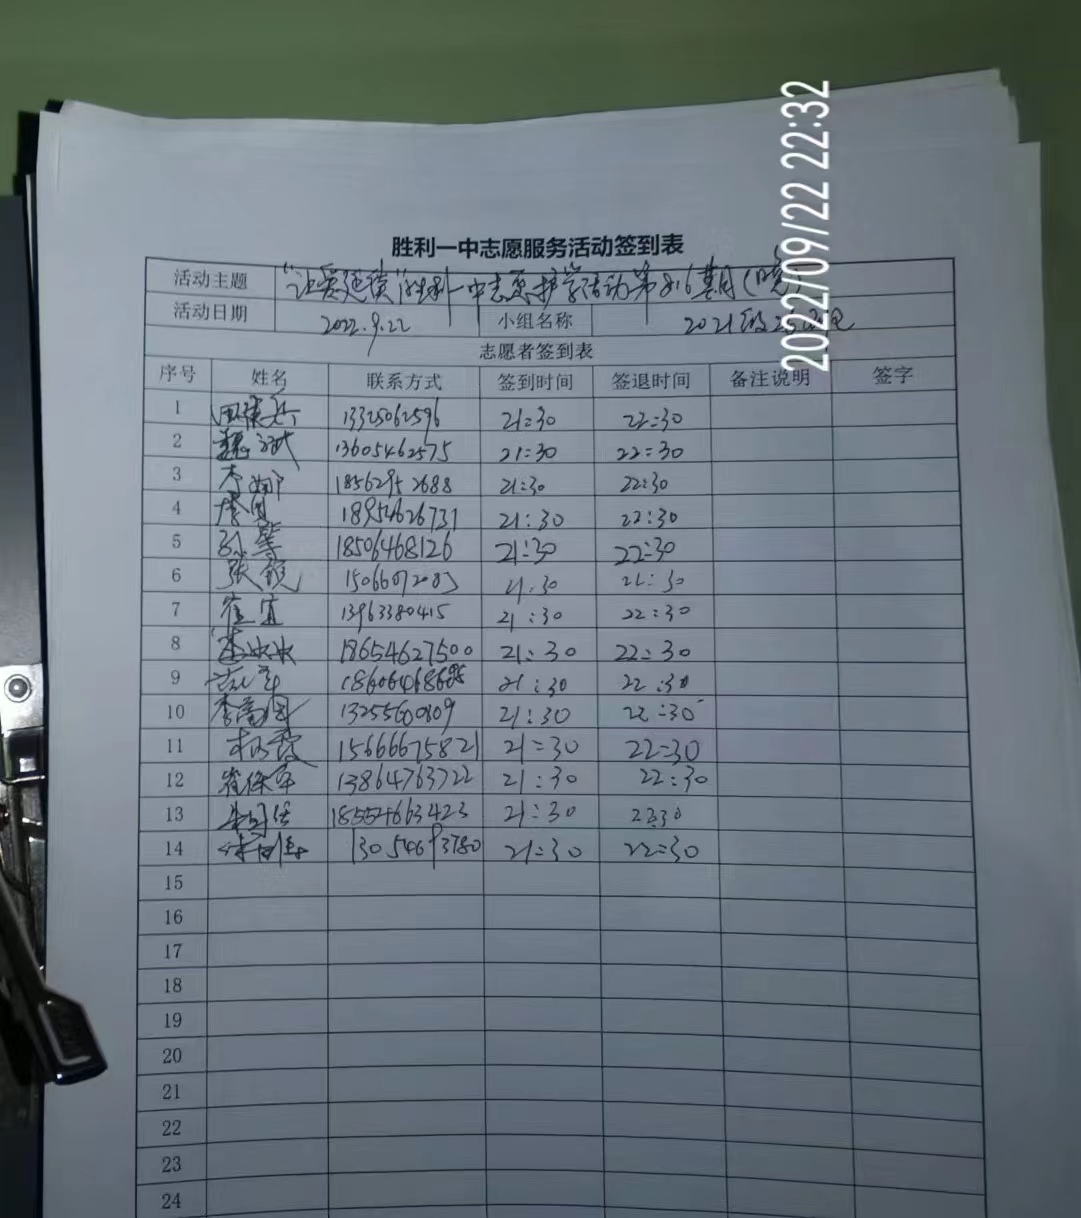 2022/09/22 22:32
胜利一中志愿服务活动签到表
活动主题 "让爱延续"胜利一中志愿护学活动第816期(晚)
活动日期 2022.9.22 小组名称 2021级
志愿者签到表
序号 姓名 联系方式 签到时间 签退时间 备注说明 签字
1 13325062596 21:30 22:30
2 13605462575 21:30 22:30
3 李娜 18562952688 21:30 22:30
4 18954626731 21:30 22:30
5 18506468126 21:30 22:30
6 21:30 22:30
7 崔宜 13963380415 21:30 22:30
8 18654627500 21:30 22:30
9 21:30 22:30
10 13255600809 21:30 22:30
11 杨霞 15666675821 21:30 22:30
12 13864763722 21:30 22:30
13 18552663423 21:30 22:30
14 13054693780 21:30 22:30
15
16
17
18
19
20
21
22
23
24